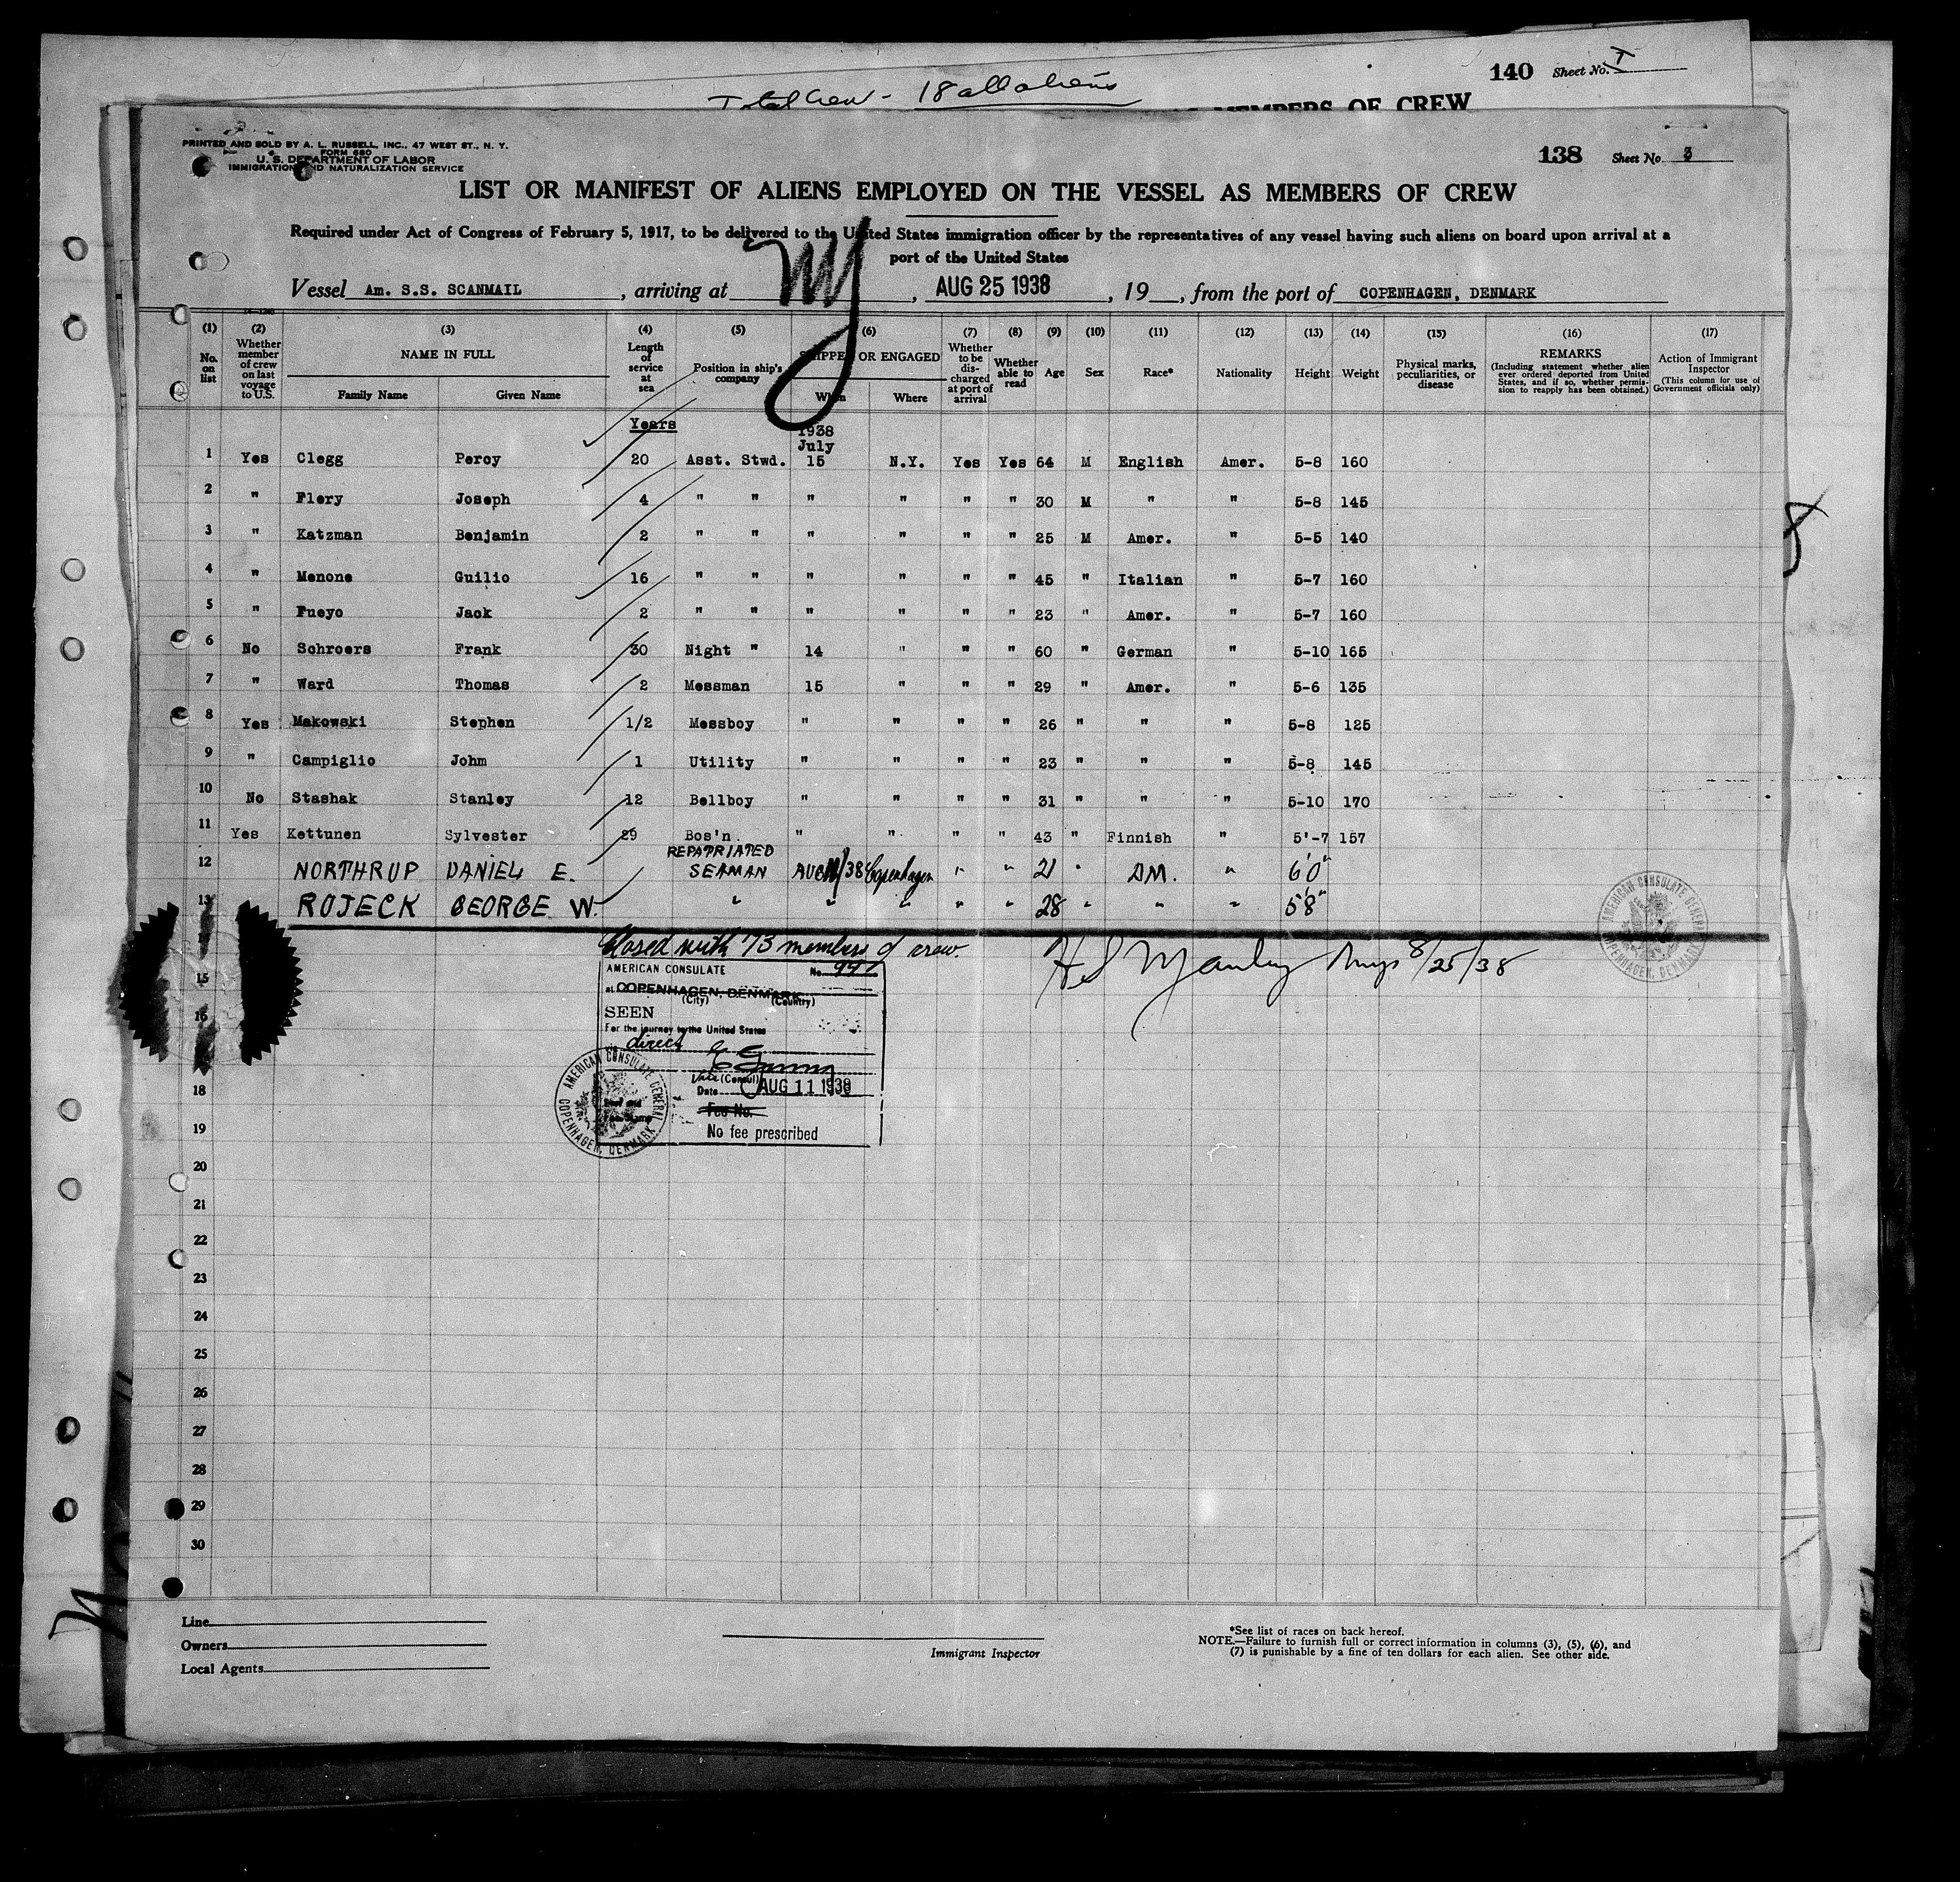 140 Sheet No. I
Total Crew - 18 all aliens
MEMBERS OF CREW
PRINTED AND SOLD BY A. L. RUSSELL, INC., 47 WEST ST., N. Y.
FORM 680
U. S. DEPARTMENT OF LABOR
IMMIGRATION AND NATURALIZATION SERVICE
138 Sheet No. 3
LIST OR MANIFEST OF ALIENS EMPLOYED ON THE VESSEL AS MEMBERS OF CREW
Required under Act of Congress of February 5, 1917, to be delivered to the United States immigration officer by the representatives of any vessel having such aliens on board upon arrival at a
port of the United States
Vessel Am. S.S. SCANMAIL, arriving at NY, AUG 25 1938, 19__, from the port of COPENHAGEN, DENMARK
(1) (2) (3) (4) (5) (6) (7) (8) (9) (10) (11) (12) (13) (14) (15) (16) (17)
No. on list
Whether member of crew on last voyage to U.S.
NAME IN FULL
Family Name Given Name
Length of service at sea
Position in ship's company
SHIPPED OR ENGAGED
When Where
Whether to be discharged at port of arrival
Whether able to read
Age
Sex
Race*
Nationality
Height
Weight
Physical marks, peculiarities, or disease
REMARKS
(Including statement whether alien ever ordered deported from United States, and if so, whether permission to reapply has been obtained.)
Action of Immigrant Inspector
(This column for use of Government officials only)
Years
1938
July
1 Yes Clegg Percy 20 Asst. Stwd. 15 N.Y. Yes Yes 64 M English Amer. 5-8 160
2 " Flery Joseph 4 " " " " " " 30 M " " 5-8 145
3 " Katzman Benjamin 2 " " " " " " 25 M Amer. " 5-5 140
4 " Menone Guilio 16 " " " " " " 45 " Italian " 5-7 160
5 " Fueyo Jack 2 " " " " " " 23 " Amer. " 5-7 160
6 No Schroers Frank 30 Night " 14 " " " 60 " German " 5-10 165
7 " Ward Thomas 2 Messman 15 " " " 29 " Amer. " 5-6 135
8 Yes Makowski Stephen 1/2 Messboy " " " " 26 " " " 5-8 125
9 " Campiglio John 1 Utility " " " " 23 " " " 5-8 145
10 No Stashak Stanley 12 Bellboy " " " " 31 " " " 5-10 170
11 Yes Kettunen Sylvester 29 Bos'n " " " " 43 " Finnish " 5'-7 157
REPATRIATED
12 NORTHRUP DANIEL E. SEAMAN AUG 11/38 Copenhagen " " 21 " AM. " 6'0"
13 ROJECK GEORGE W. " " " " " 28 " " " 5'8"
Closed with 73 members of crew.
H S Manley Insp 8/25/38
AMERICAN CONSULATE No. 947
at COPENHAGEN, DENMARK
(City) (Country)
SEEN
For the journey to the United States
direct
Vice (Consul)
Date AUG 11 1938
Fee No.
No fee prescribed
AMERICAN CONSULATE GENERAL COPENHAGEN, DENMARK
AMERICAN CONSULATE GENERAL COPENHAGEN, DENMARK
15
16
18
19
20
21
22
23
24
25
26
27
28
29
30
Line
Owners
Local Agents
Immigrant Inspector
*See list of races on back hereof.
NOTE.—Failure to furnish full or correct information in columns (3), (5), (6), and
(7) is punishable by a fine of ten dollars for each alien. See other side.